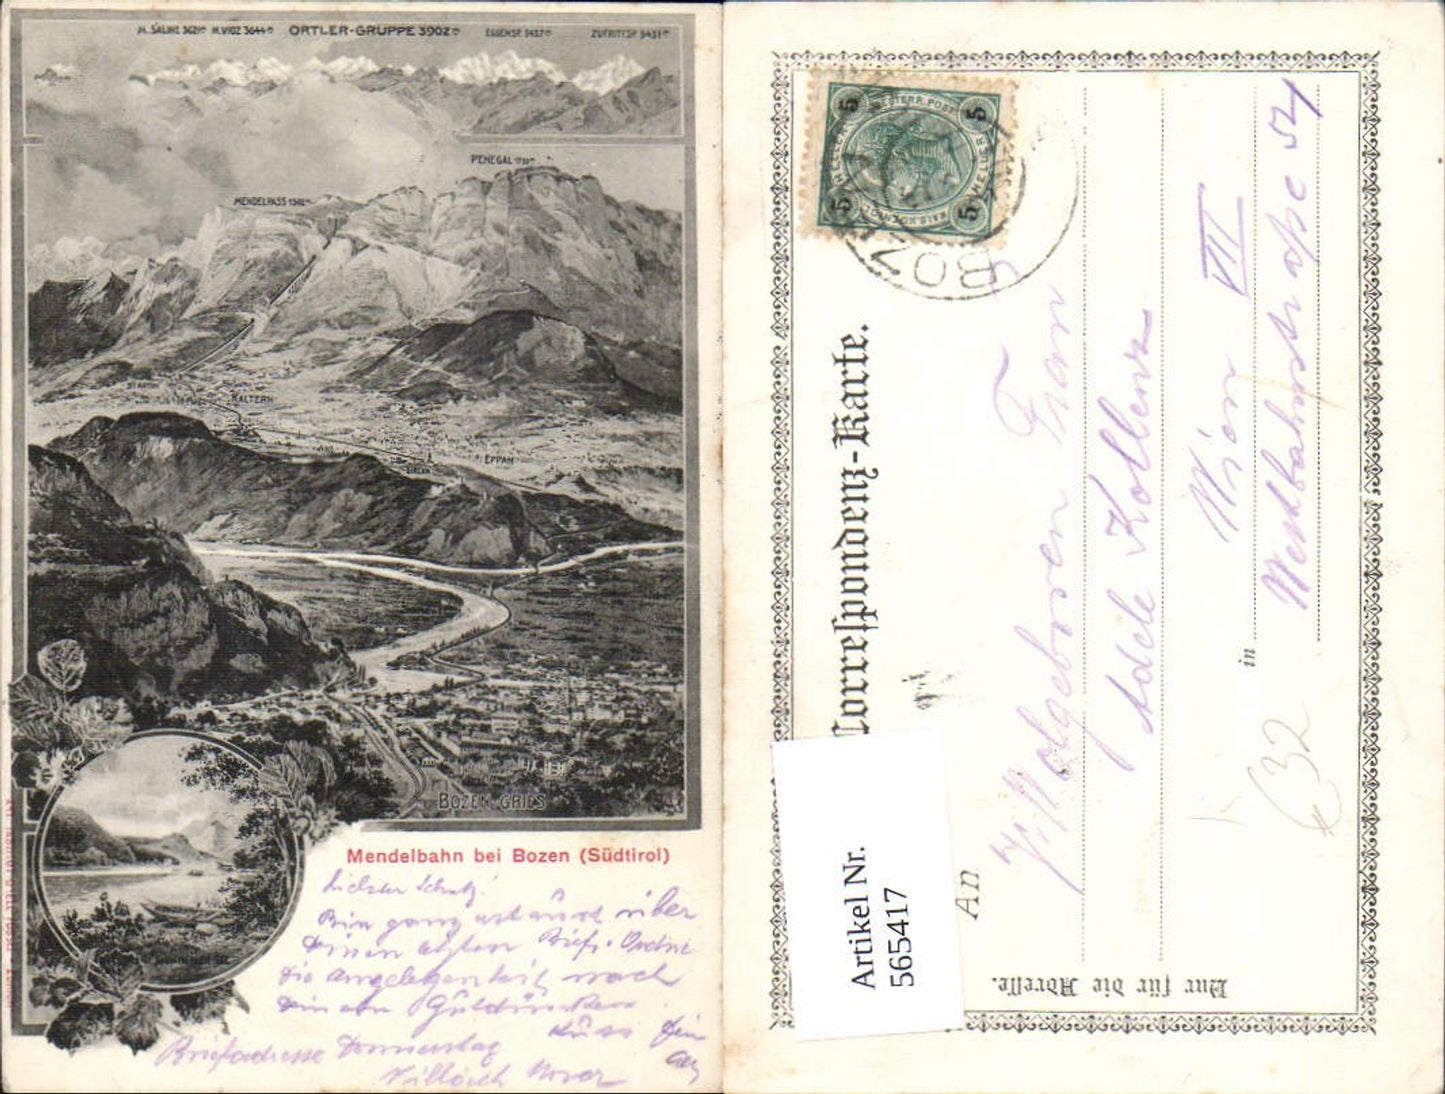 M. SALINE 3621m M. VIOZ 3644m ORTLER-GRUPPE 3902m EGGENSP. 3437m ZUFRITTSP. 3431m
PENEGAL 1738m
MENDELPASS 1362m
ST. ANTON
KALTERN
EPPAN
GIRLAN
BOZEN-GRIES
Mendelbahn bei Bozen (Südtirol)
Liebster Schatz!
Bin ganz erstaunt über
Deinen letzten Brief. Ordne
die Angelegenheit nach
Deinem Gutdünken.
Kuss Dein
Briefadresse Donnerstag
Villach
5 5
5 5
BOZ
Correspondenz-Karte.
An
Wohlgeboren Frau
Adele
Wien VII
in
Westbahnstrasse 54
Nur für die Adresse.
632
Artikel Nr.
565417